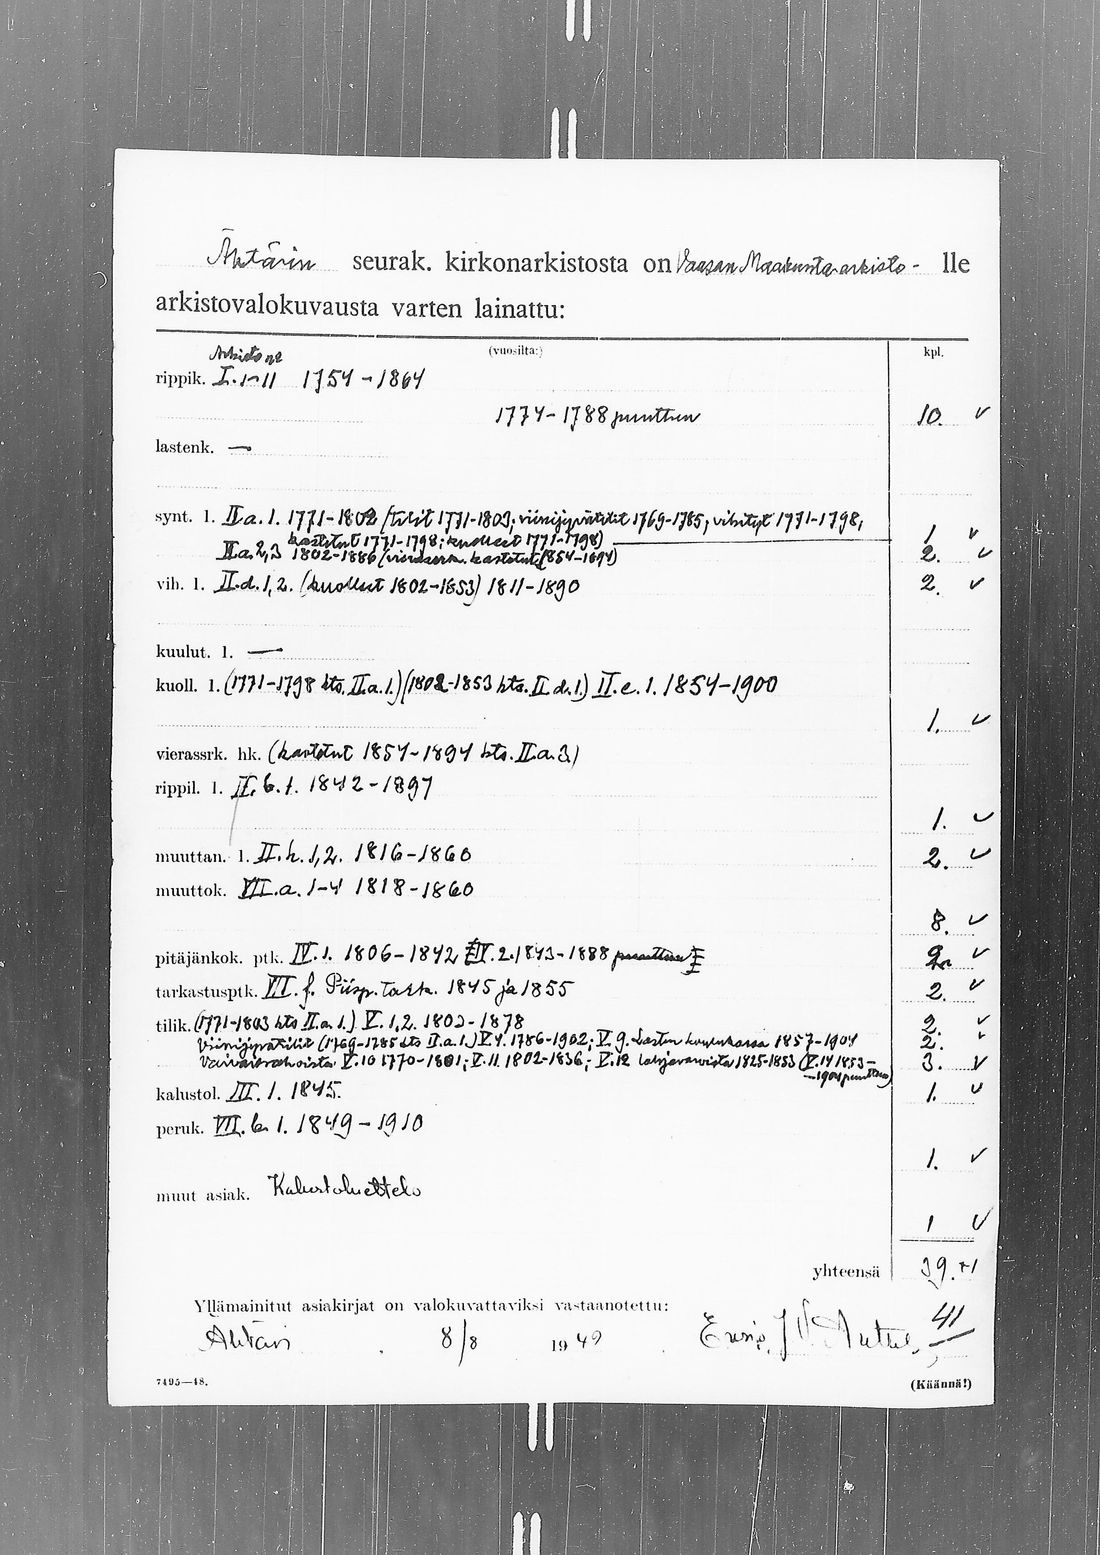 Ähtärin seurak. kirkonarkistosta on Vaasan Maakunta-arkisto - lle
arkistovalokuvausta varten lainattu:
Arkisto n:o (vuosilta:) kpl.
rippik. I. 1-11 1754-1864
1774-1788 puuttuu 10. v
lastenk. —
synt. l. II a. 1. 1771-1802 (tilit 1771-1803; viinijyvätilit 1769-1785; vihityt 1771-1798,
kastetut 1771-1798; kuolleet 1771-1798) 1 v
II a. 2,3 1802-1886 (vierasserk. kastetut 1854-1894) 2. v
vih. l. II. d. 1, 2. (kuolleet 1802-1853) 1811-1890 2. v
kuulut. l. —
kuoll. l. (1771-1798 kts. II a. 1.) (1802-1853 kts. II d. 1.) II. e. 1. 1854-1900
1. v
vierassrk. hk. (kastetut 1854-1894 kts. II. a. 3)
rippil. l. II. b. 1. 1842-1897
1. v
muuttan. l. II. h. 1, 2. 1816-1860 2. v
muuttok. VII. a. 1-4 1818-1860
8. v
pitäjänkok. ptk. IV. 1. 1806-1842 IV. 2. 1843-1888 puuttuu 2. v
tarkastusptk. VII. f. Piisp. tark. 1845 ja 1855 2. v
tilik. (1771-1803 kts II. a. 1.) V. 1, 2. 1802-1878 2. v
Viinijyvätilit (1769-1785 kts II. a. 1.) V. 4. 1786-1902; V. 9. Lasten koulukassa 1857-1904 2. v
Vaivaisrahoista V. 10 1770-1801; V. 11. 1802-1836; V. 12 lahjavaroista 1825-1853 (V. 14 1853- 3. v
-1904 puuttuu)
kalustol. III. 1. 1845. 1. v
peruk. VII. b. 1. 1849-1910
1. v
muut asiak. Kalustoluettelo
1 v
yhteensä 39. +1
Yllämainitut asiakirjat on valokuvattaviksi vastaanotettu: 41
Ähtäri 8/8 1949
7495—48. (Käännä!)